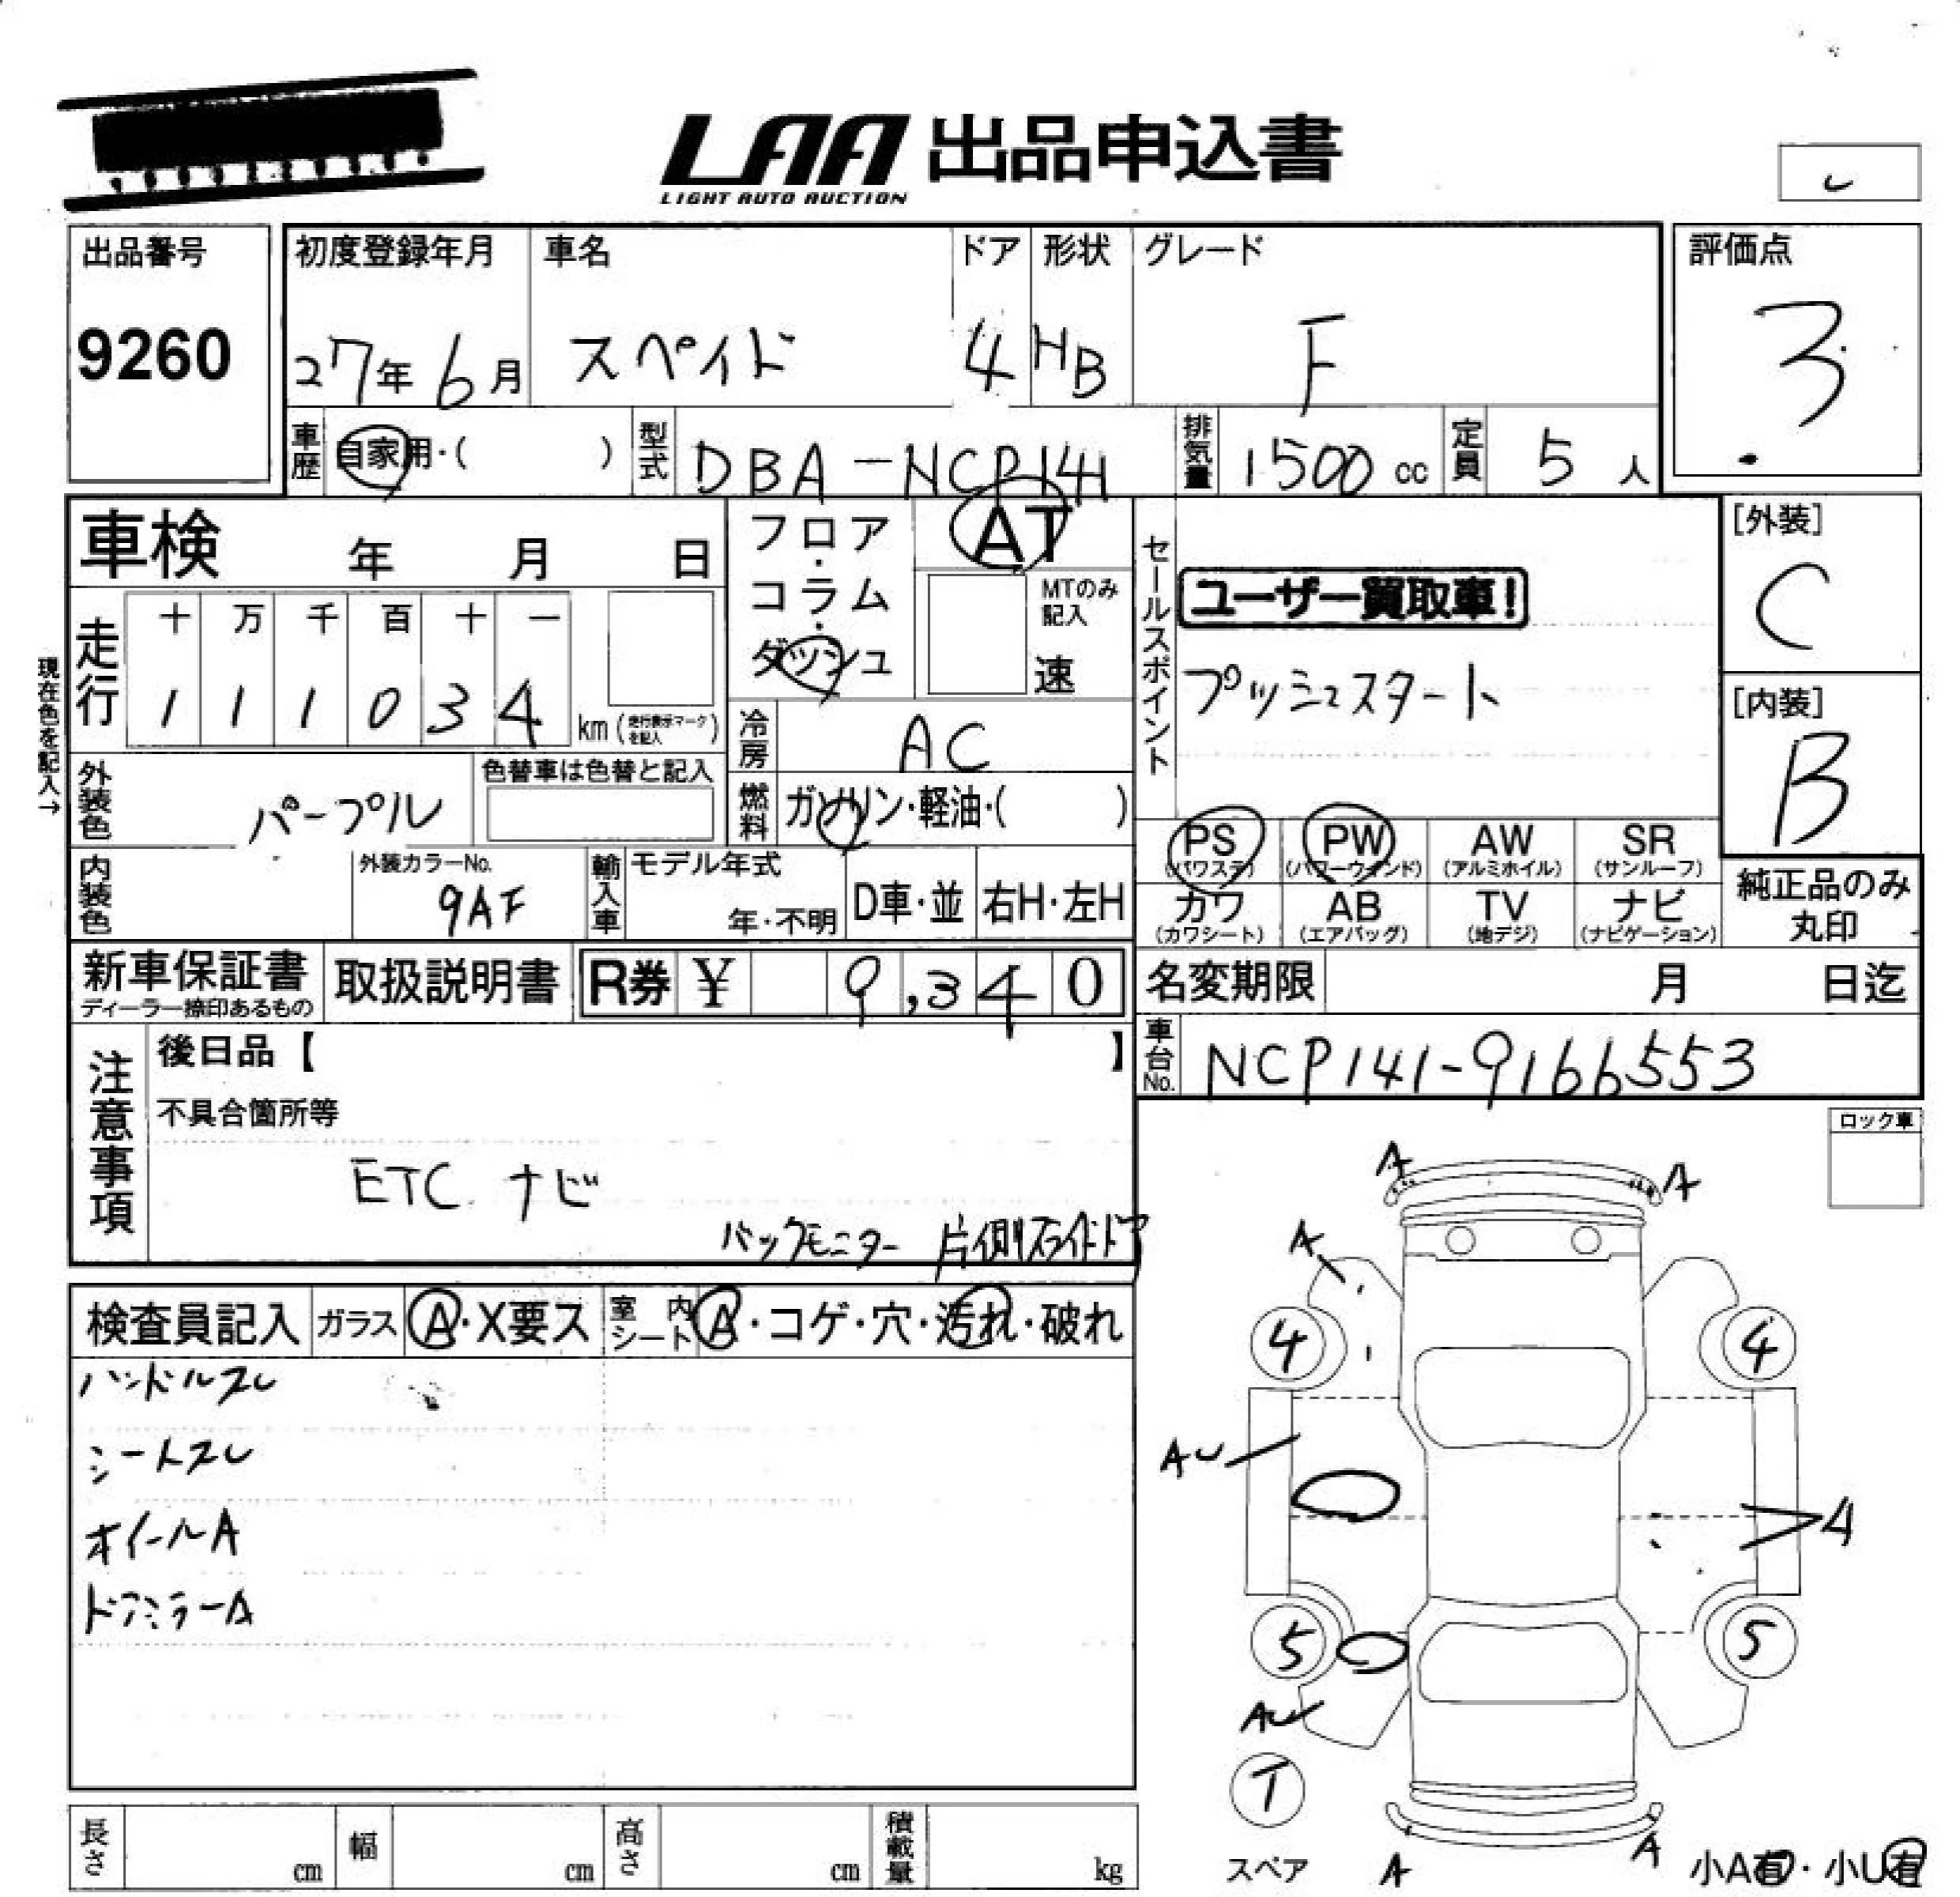 LAA 出品申込書
LIGHT AUTO AUCTION
出品番号 初度登録年月 車名 ドア 形状 グレード 評価点
9260 27年6月 スペイド 4 HB F 3
車歴 自家用・( ) 型式 DBA-NCP141 排気量 1500 cc 定員 5 人
車検 年 月 日 フロア・コラム・ダッシュ AT セールスポイント [外装]
MTのみ記入 速 ユーザー買取車! C
現在色を記入→
走行 十 万 千 百 十 一
1 1 1 0 3 4 km (走行表示マークを記入) プッシュスタート [内装]
冷房 AC B
外装色 パープル 色替車は色替と記入 燃料 ガソリン・軽油・( )
PS (パワステ) PW (パワーウインド) AW (アルミホイル) SR (サンルーフ)
内装色 外装カラーNo. 9AF 輸入車 モデル年式 年・不明 D車・並 右H・左H
カワ (カワシート) AB (エアバッグ) TV (地デジ) ナビ (ナビゲーション) 純正品のみ丸印
新車保証書 取扱説明書 R券 ¥ 9,340 名変期限 月 日迄
ディーラー捺印あるもの
車台No. NCP141-9166553
注意事項 後日品【 】
不具合箇所等
ETC ナビ
バックモニター 片側スライドドア
ロック車
検査員記入 ガラス A・X要ス 室内シート A・コゲ・穴・汚れ・破れ
ハンドルスレ
シートスレ
ホイールA
ドアミラーA
A A
A
4 4
AU
A
5 5
AU
T
スペア A A 小A有・小U有
長さ cm 幅 cm 高さ cm 積載量 kg